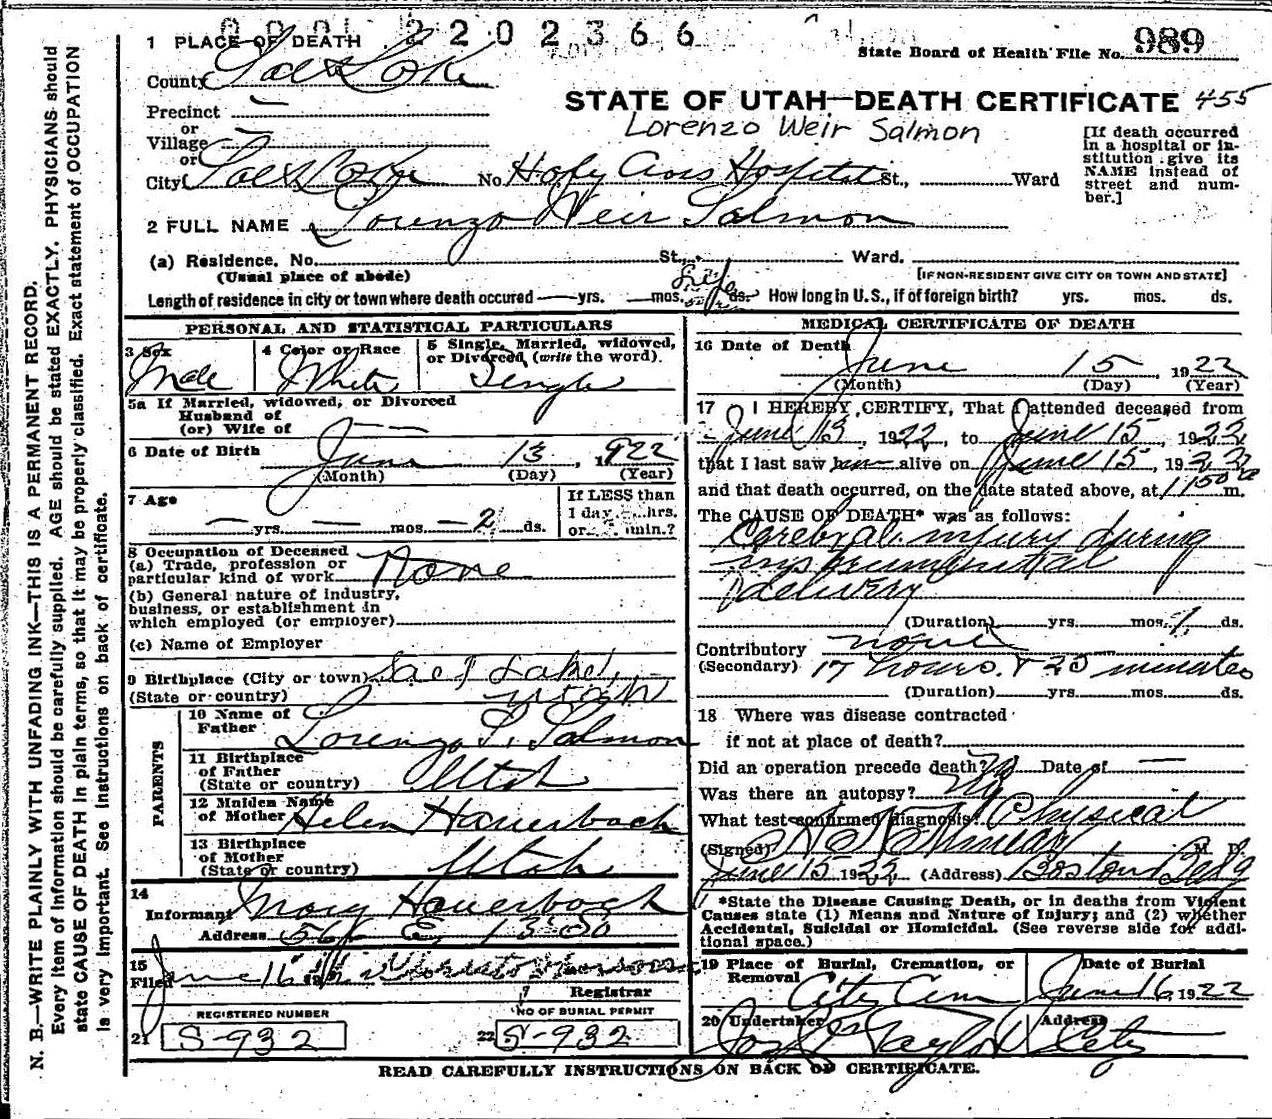 2 2 0 2 3 6 6
1 PLACE OF DEATH
State Board of Health File No. 989
County Salt Lake
STATE OF UTAH—DEATH CERTIFICATE 455
Precinct —
Lorenzo Weir Salmon
or
Village —
or
City Salt Lake No. Holy Cross Hospital St., Ward
[If death occurred in a hospital or institution give its NAME instead of street and number.]
2 FULL NAME Lorenzo Weir Salmon
(a) Residence. No. St., Ward.
(Usual place of abode)
[IF NON-RESIDENT GIVE CITY OR TOWN AND STATE]
Length of residence in city or town where death occured — yrs. mos. Life ds. How long in U. S., if of foreign birth? yrs. mos. ds.
PERSONAL AND STATISTICAL PARTICULARS
3 Sex
Male
4 Color or Race
White
5 Single, Married, widowed, or Divorced (write the word).
Single
5a If Married, widowed, or Divorced
Husband of
(or) Wife of — —
6 Date of Birth June 13, 1922
(Month) (Day) (Year)
7 Age
— yrs. — mos. 2 ds.
If LESS than
1 day hrs.
or min.?
8 Occupation of Deceased
(a) Trade, profession or
particular kind of work None
(b) General nature of industry,
business, or establishment in
which employed (or employer)
(c) Name of Employer
9 Birthplace (City or town) Salt Lake,
(State or country) Utah
PARENTS
10 Name of
Father Lorenzo S. Salmon
11 Birthplace
of Father
(State or country) Utah
12 Maiden Name
of Mother Helen Hauerbach
13 Birthplace
of Mother
(State or country) Utah
14
Informant Mary Hauerbach
Address 561 E, 13 So
15
Filed June 16
Registrar
REGISTERED NUMBER
21 S-932
NO OF BURIAL PERMIT
22 S-932
MEDICAL CERTIFICATE OF DEATH
16 Date of Death June 15, 1922
(Month) (Day) (Year)
17 I HEREBY CERTIFY, That I attended deceased from
June 13, 1922, to June 15, 1922
that I last saw him alive on June 15, 1922
and that death occurred, on the date stated above, at 1150 a m.
The CAUSE OF DEATH* was as follows:
Cerebral injury during
instrumental
delivery
(Duration) yrs. mos. 1 ds.
Contributory none
(Secondary) 17 hours & 20 minutes
(Duration) yrs. mos. ds.
18 Where was disease contracted
if not at place of death?
Did an operation precede death? No Date of —
Was there an autopsy? No
What test confirmed diagnosis? Physical
(Signed) M. D.
June 15 1922 (Address) Boston Bldg
*State the Disease Causing Death, or in deaths from Violent
Causes state (1) Means and Nature of Injury; and (2) whether
Accidental, Suicidal or Homicidal. (See reverse side for addi-
tional space.)
19 Place of Burial, Cremation, or
Removal City Cem
Date of Burial
June 16 1922
20 Undertaker Jos Taylor
Address
City
READ CAREFULLY INSTRUCTIONS ON BACK OF CERTIFICATE.
N. B.—WRITE PLAINLY WITH UNFADING INK—THIS IS A PERMANENT RECORD.
Every item of information should be carefully supplied. AGE should be stated EXACTLY. PHYSICIANS should
state CAUSE OF DEATH in plain terms, so that it may be properly classified. Exact statement of OCCUPATION
is very important. See instructions on back of certificate.